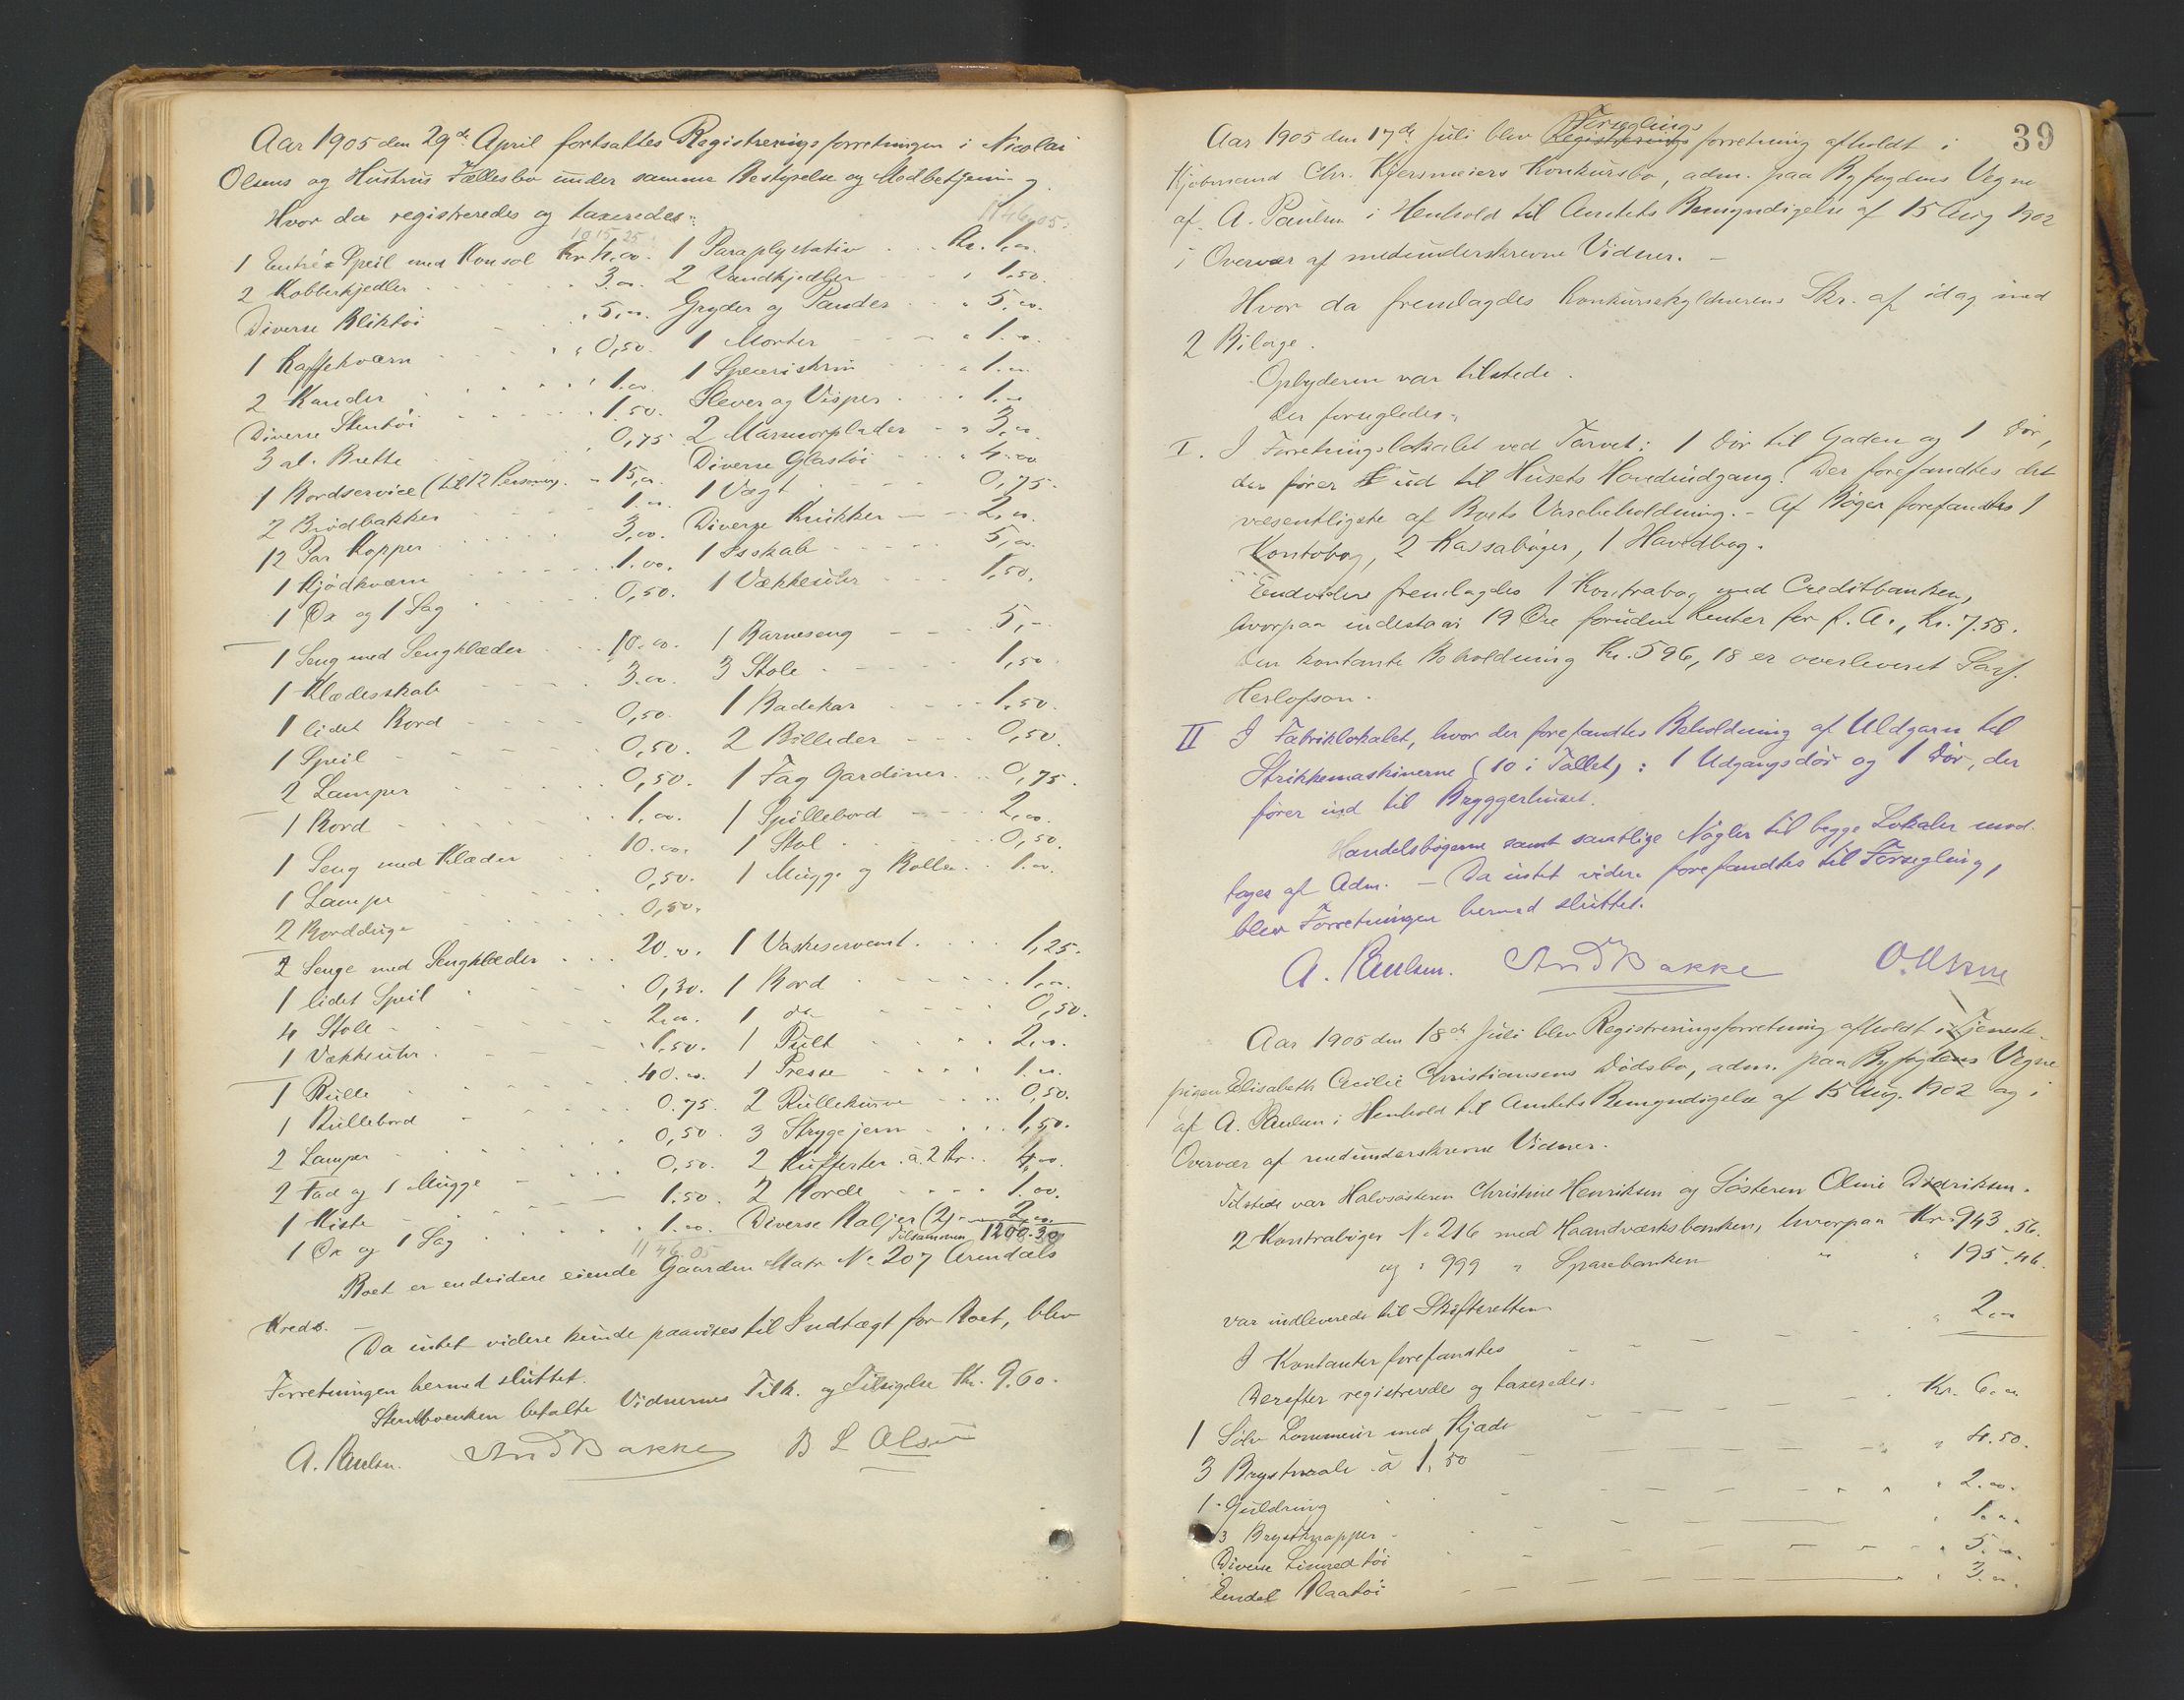 Aar 1905 den 29de April fortsattes Registreringsforretningen i Nicolai
Olsens og Hustrus Fællesbo under samme Bestyrelse og Medbetjening.
Hvor da registreredes og taxeredes:
1015.25 1146,05.
1 Entré Speil med Konsol Kr. 4,00. 1 Paraplystativ Kr. 1,00.
2 Kobberkjedler 3.00. 2 Vandkjedler 1.50.
Diverse Bliktøi 5,00. Gryder og Pander 5,00.
1 Kaffekværn 0,50. 1 Morter 1.00.
2 Kander 1.00. 1 Speceriskrin 1.00.
Diverse Stentøi 1.50. Slever og Visper 1.00
3 al. Brette 0,75 2 Marmorplader 3,00.
1 Bordservice (til 12 Personer). 15,00. Diverse Glastøi 4.00
2 Brødbakker 1.00. 1 Vægt 0,75.
12 Par Kopper 3,00. Diverse Krukker 2,00.
1 Kjødkværn 1.00. 1 Isskab 5,00.
1 Øx og 1 Sag 0,50. 1 Vækkeuhr 1,50.
1 Seng med Sengklæder 10.00. 1 Barneseng 5,-
1 Klædesskab 3.00. 3 Stole 1,50.
1 lidet Bord 0,50. 1 Badekar 1.50.
1 Speil 0,50. 2 Billeder 0,50.
2 Lamper 0,50. 1 Fag Gardiner 0,75.
1 Bord 1,00. 1 Spillebord 2,00.
1 Seng med Klæder 10.00. 1 Stol 0,50.
1 Lampe 0,50. 1 Mugge og Boller 1.00.
2 Bordduge 0,50.
2 Senge med Sengklæder 20.00. 1 Vaskeservant 1,25.
1 lidet Speil 0,30. 1 Bord 1,00.
4 Stole 2,00. 1 do 0,50.
1 Vækkeuhr 1.50. 1 Pult 2,00.
1 Rulle 40.00. 1 Presse 1.00.
1 Rullebord 0.75. 2 Rullekurve 0,50.
2 Lamper 0,50. 3 Strygejern 1,50.
2 Fad og 1 Mugge 0,50. 2 Kufferter à 2 Kr. 4,00.
1 Kiste 1.50. 2 Borde 1.00.
1 Øx og 1 Sag 1.00. Diverse Baljer (2) 2,00.
1146.05 Tilsammen 1200.30
Boet er endvidere eiende Gaarden Matr No 207 Arendals
Kreds. -
Da intet videre kunde paavises til Indtægt for Boet, blev
Forretningen hermed sluttet.
betalte Vidnernes Tilk. og Tilsigelse Kr. 9.60.
A. Paulsen. And Bakke B L Olsen
39
Forseglings
Aar 1905 den 17de Juli blev Registreringsforretning afholdt i
Kjøbmand Chr. Kjersmeiers Konkursbo, adm. paa Byfogdens Vegne
af A. Paulsen i Henhold til Amtets Bemyndigelse af 15 Aug 1902
i Overvær af medunderskrevne Vidner. -
Hvor da fremlagdes Konkursskyldnerens Skr. af idag med
2 Bilage.
Opbyderen var tilstede.
Der forsegledes:
I. I Forretningslokalet ved Torvet: 1 Dør til Gaden og 1 Dør,
der fører ud til Husets Hovedindgang. Der forefandtes det
væsentligste af Boets Varebeholdning. - Af Bøger forefandtes 1
Kontobog, 2 Kassabøger, 1 Hovedbog.
Endvidere fremlagdes 1 Kontrabog med Creditbanken,
hvorpaa indestaar 19 Øre foruden Renter for f. A., Kr. 7.58.
Den kontante Beholdning Kr. 596,18 er overleveret Sagf.
Herlofson.
II I Fabriklokalet, hvor der forefandtes Beholdning af Uldgarn til
Strikkemaskinerne (10 i Tallet): 1 Udgangsdør og 1 Dør, der
fører ind til Bryggerhuset.
Handelsbøgerne samt samtlige Nøgler til begge Lokaler mod-
tages af Adm. - Da intet videre forefandtes til Forsegling,
blev Forretningen hermed sluttet.
A. Paulsen. And Bakke
Aar 1905 den 18de Juli blev Registreringsforretning afholdt i Tjeneste-
pigen Elisabeth Cecilie Christiansens Dødsbo, adm. paa Byfogdens Vegne
af A. Paulsen i Henhold til Amtets Bemyndigelse af 15 Aug. 1902 og i
Overvær af medunderskrevne Vidner.
Tilstede var Halvsøsteren Christine Henriksen og Søsteren Oline Didriksen.
2 Kontrabøger No 216 med Haandværksbanken, hvorpaa Kr. 943.56.
og " 999 " Sparebanken " " 195.46.
var indleverede til Skifteretten
I Kontanter forefandtes " 2.00
Derefter registreredes og taxeredes:
1 Sølv Lommeur med Kjæde Kr. 6.00
3 Brystnaale à 1,50 " 4.50.
1 Guldring " 2.00.
3 Brystknapper " 1.00.
Diverse Linnedtøi " 5.00.
Endel Klædtøi " 3.00.